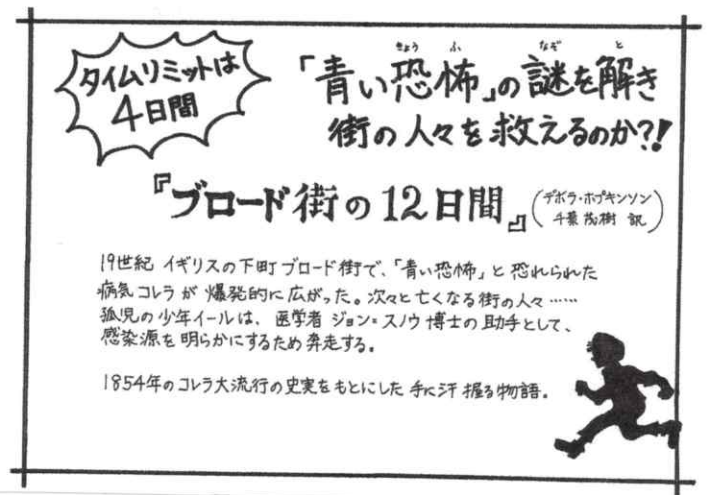 タイムリミットは
4日間
「青い恐怖」の謎を解き
きょう ふ なぞ と
街の人々を救えるのか?!
『ブロード街の12日間』
(デボラ・ホプキンソン
千葉茂樹 訳)
19世紀 イギリスの下町ブロード街で、「青い恐怖」と恐れられた
病気コレラが 爆発的に広がった。次々と亡くなる街の人々……
孤児の少年イールは、医学者 ジョン=スノウ博士の助手として、
感染源を明らかにするため奔走する。
1854年のコレラ大流行の史実をもとにした 手に汗握る物語。